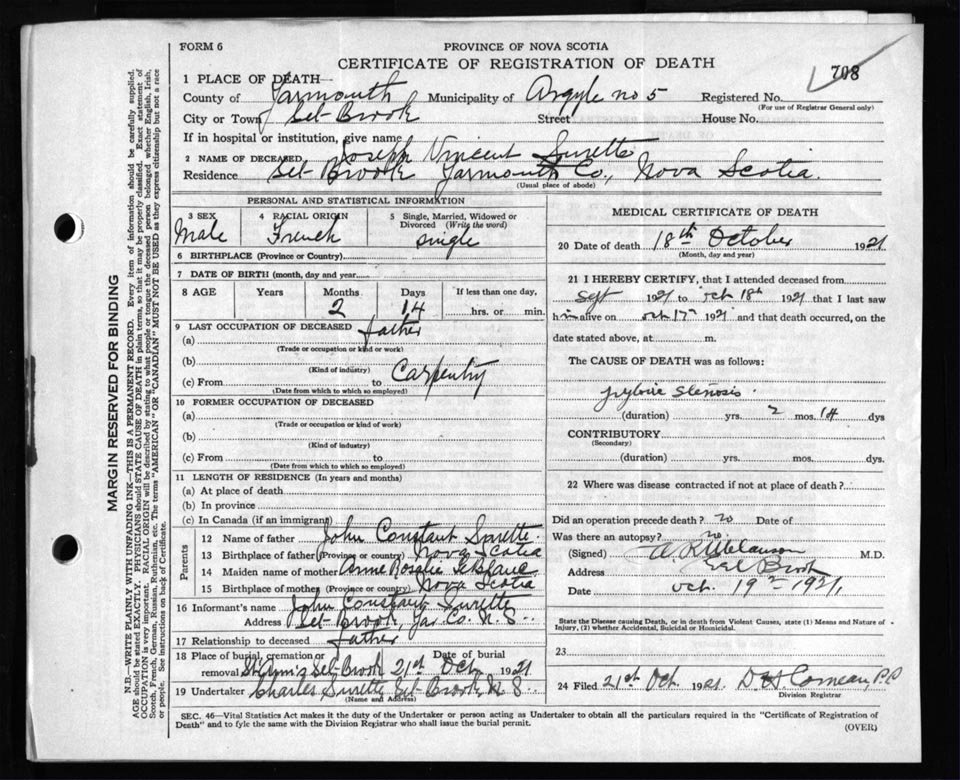 FORM 6
PROVINCE OF NOVA SCOTIA
CERTIFICATE OF REGISTRATION OF DEATH
708
1 PLACE OF DEATH—
County of Yarmouth Municipality of Argyle no 5 Registered No.
(For use of Registrar General only)
City or Town Eel-Brook Street House No.
If in hospital or institution, give name
2 NAME OF DECEASED Joseph Vincent Surette
Residence Eel-Brook Yarmouth Co., Nova Scotia.
(Usual place of abode)
PERSONAL AND STATISTICAL INFORMATION
3 SEX Male
4 RACIAL ORIGIN French
5 Single, Married, Widowed or Divorced (Write the word) single
6 BIRTHPLACE (Province or Country)
7 DATE OF BIRTH (month, day and year)
8 AGE Years Months 2 Days 14 If less than one day, hrs. or min.
9 LAST OCCUPATION OF DECEASED father
(a)
(Trade or occupation or kind or work)
(b)
(Kind of industry)
Carpentry
(c) From to
(Date from which to which so employed)
10 FORMER OCCUPATION OF DECEASED
(a)
(Trade or occupation or kind of work)
(b)
(Kind of industry)
(c) From to
(Date from which to which so employed)
11 LENGTH OF RESIDENCE (In years and months)
(a) At place of death
(b) In province
(c) In Canada (if an immigrant)
Parents
12 Name of father John Constant Surette
13 Birthplace of father (Province or country) Nova Scotia
14 Maiden name of mother Anne Rosalie
15 Birthplace of mother (Province or country) Nova Scotia
16 Informant's name John Constant Surette
Address Eel-Brook, Yar. Co. N. S.
17 Relationship to deceased father
18 Place of burial, cremation or removal St Ann's Eel-Brook Date of burial 21st Oct, 1921
19 Undertaker Charles Surette Eel-Brook N. S.
(Name and Address)
MEDICAL CERTIFICATE OF DEATH
20 Date of death 18th October 1921
(Month, day and year)
21 I HEREBY CERTIFY, that I attended deceased from
Sept 1921 to Oct 18th 1921 that I last saw
him alive on Oct 17th 1921 and that death occurred, on the
date stated above, at m.
The CAUSE OF DEATH was as follows:
pyloric stenosis.
(duration) yrs. 2 mos. 14 dys
CONTRIBUTORY
(Secondary)
(duration) yrs. mos. dys.
22 Where was disease contracted if not at place of death?
Did an operation precede death? no Date of
Was there an autopsy? no.
(Signed) M.D.
Address Eel Brook
Date Oct. 19th 1921.
State the Disease causing Death, or in death from Violent Causes, state (1) Means and Nature of Injury, (2) whether Accidental, Suicidal or Homicidal.
23
24 Filed 21st Oct. 1921. D H Comeau, P.P.
Division Registrar
SEC. 46—Vital Statistics Act makes it the duty of the Undertaker or person acting as Undertaker to obtain all the particulars required in the "Certificate of Registration of
Death" and to fyle the same with the Division Registrar who shall issue the burial permit.
(OVER)
MARGIN RESERVED FOR BINDING
N.B.—WRITE PLAINLY WITH UNFADING INK—THIS IS A PERMANENT RECORD. Every item of information should be carefully supplied.
AGE should be stated EXACTLY. PHYSICIANS should STATE CAUSE OF DEATH in plain terms, so that it may be properly classified. Exact statement of
OCCUPATION is very important. RACIAL ORIGIN will be described by stating to what people or tongue the deceased person belonged whether English, Irish,
Scotch, French, German, Russian, Ruthenian, etc. The terms "AMERICAN" OR "CANADIAN" MUST NOT BE USED as they express citizenship but not a race
or people. See instructions on back of Certificate.